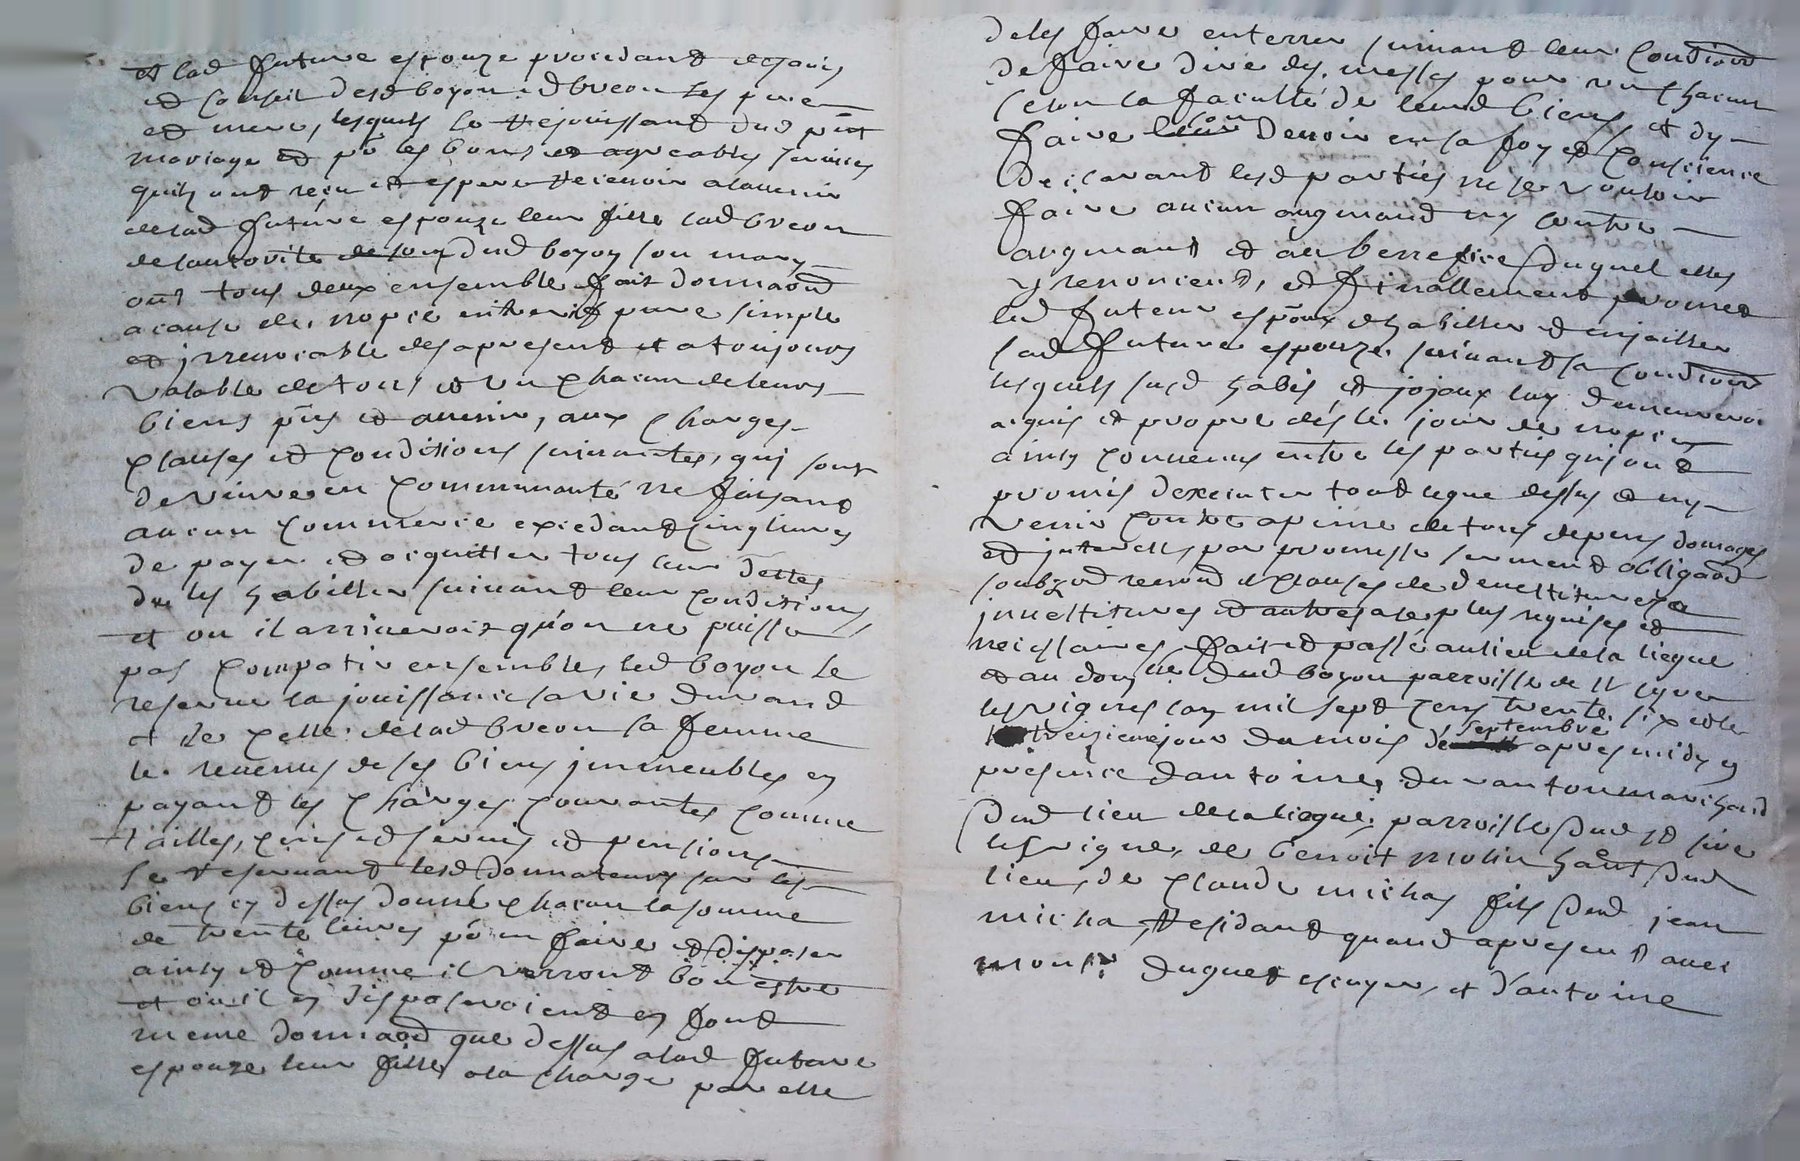 et lad future espouze procedant de lavis
et conseil desd boyon et breon ses pere
et mere, lesquels se rejouissant dud pnt
mariage et pr les bons et agreables services
quils ont reçu et espere recevoir a lavenir
de lad future espouze leur fille lad breon
de lautorité dud boyon son mary
ont tous deux ensemble fait donnaon
a cause de nopce pure simple
et jrrevocable des apresent et a toujours
valable de tous et un chacun de leurs
biens pns et avenir, aux charges
clauses et conditions suivantes, qui sont
de vivre en communauté ne faisant
aucun commerce excedant cinq livres
de payer et acquitter tous leur dettes
de les habiller suivant leur conditions
et ou il arriveroit quon ne puisse
pas compatir ensembles led boyon se
reserve la jouissance sa vie durand
et de celle de lad breon sa femme
le revenus de ses biens jmmeubles en
payant les charges courantes comme
tailles, cens et servis et pensions
se reservant lesd donnateurs sur les
biens cy dessus donné chacun la somme
de trente livres pr en faire et disposer
ainsy et comme il verront bon estre
et ou il en disposeroient en font
meme donnaon que dessus a lad future
espouze leur fille a la charge par elle
de les faire enterrer suivant leur condiond
de faire dire des messes pour un chacun
selon la faculté de leurd biens et dy
faire son devoir en sa foy et conscience
declarant lesd parties ne se vouloir
faire aucun augmand ny contre
augmant et au benefice duquel elles
y renoncent, et finallement promet
led futeur espoux dhabiller et enjailler
lad future espouze suivant sa condiond
lesquels susd habis et jojaux luy demeureron
aquis et propre dés le jour de nopces
ainsy convenus entre les parties qui ont
promis dexecuter tout ce que dessus et ny
venir contre a peine de tous depens domages
et jnterests par promesse serment obligaond
soubz renond et clauses de devestitures
jnvestitures et autres a ce plus requises et
necessaires fait et passé au lieu de la liegue
et au domlle dud boyon parroisse de st cyre
les vignes lan mil sept cens trente six et le
treizieme jour du mois de septembre apres midy en
presence dantoine duranton marichand
dud lieu de la liegue parroisse dud st sire
les vigne, de benoit molin habt dud
lieu, de claude michas fils dud jean
micha, residant quand apresent avec
monsr duguet escuyer, et dantoine